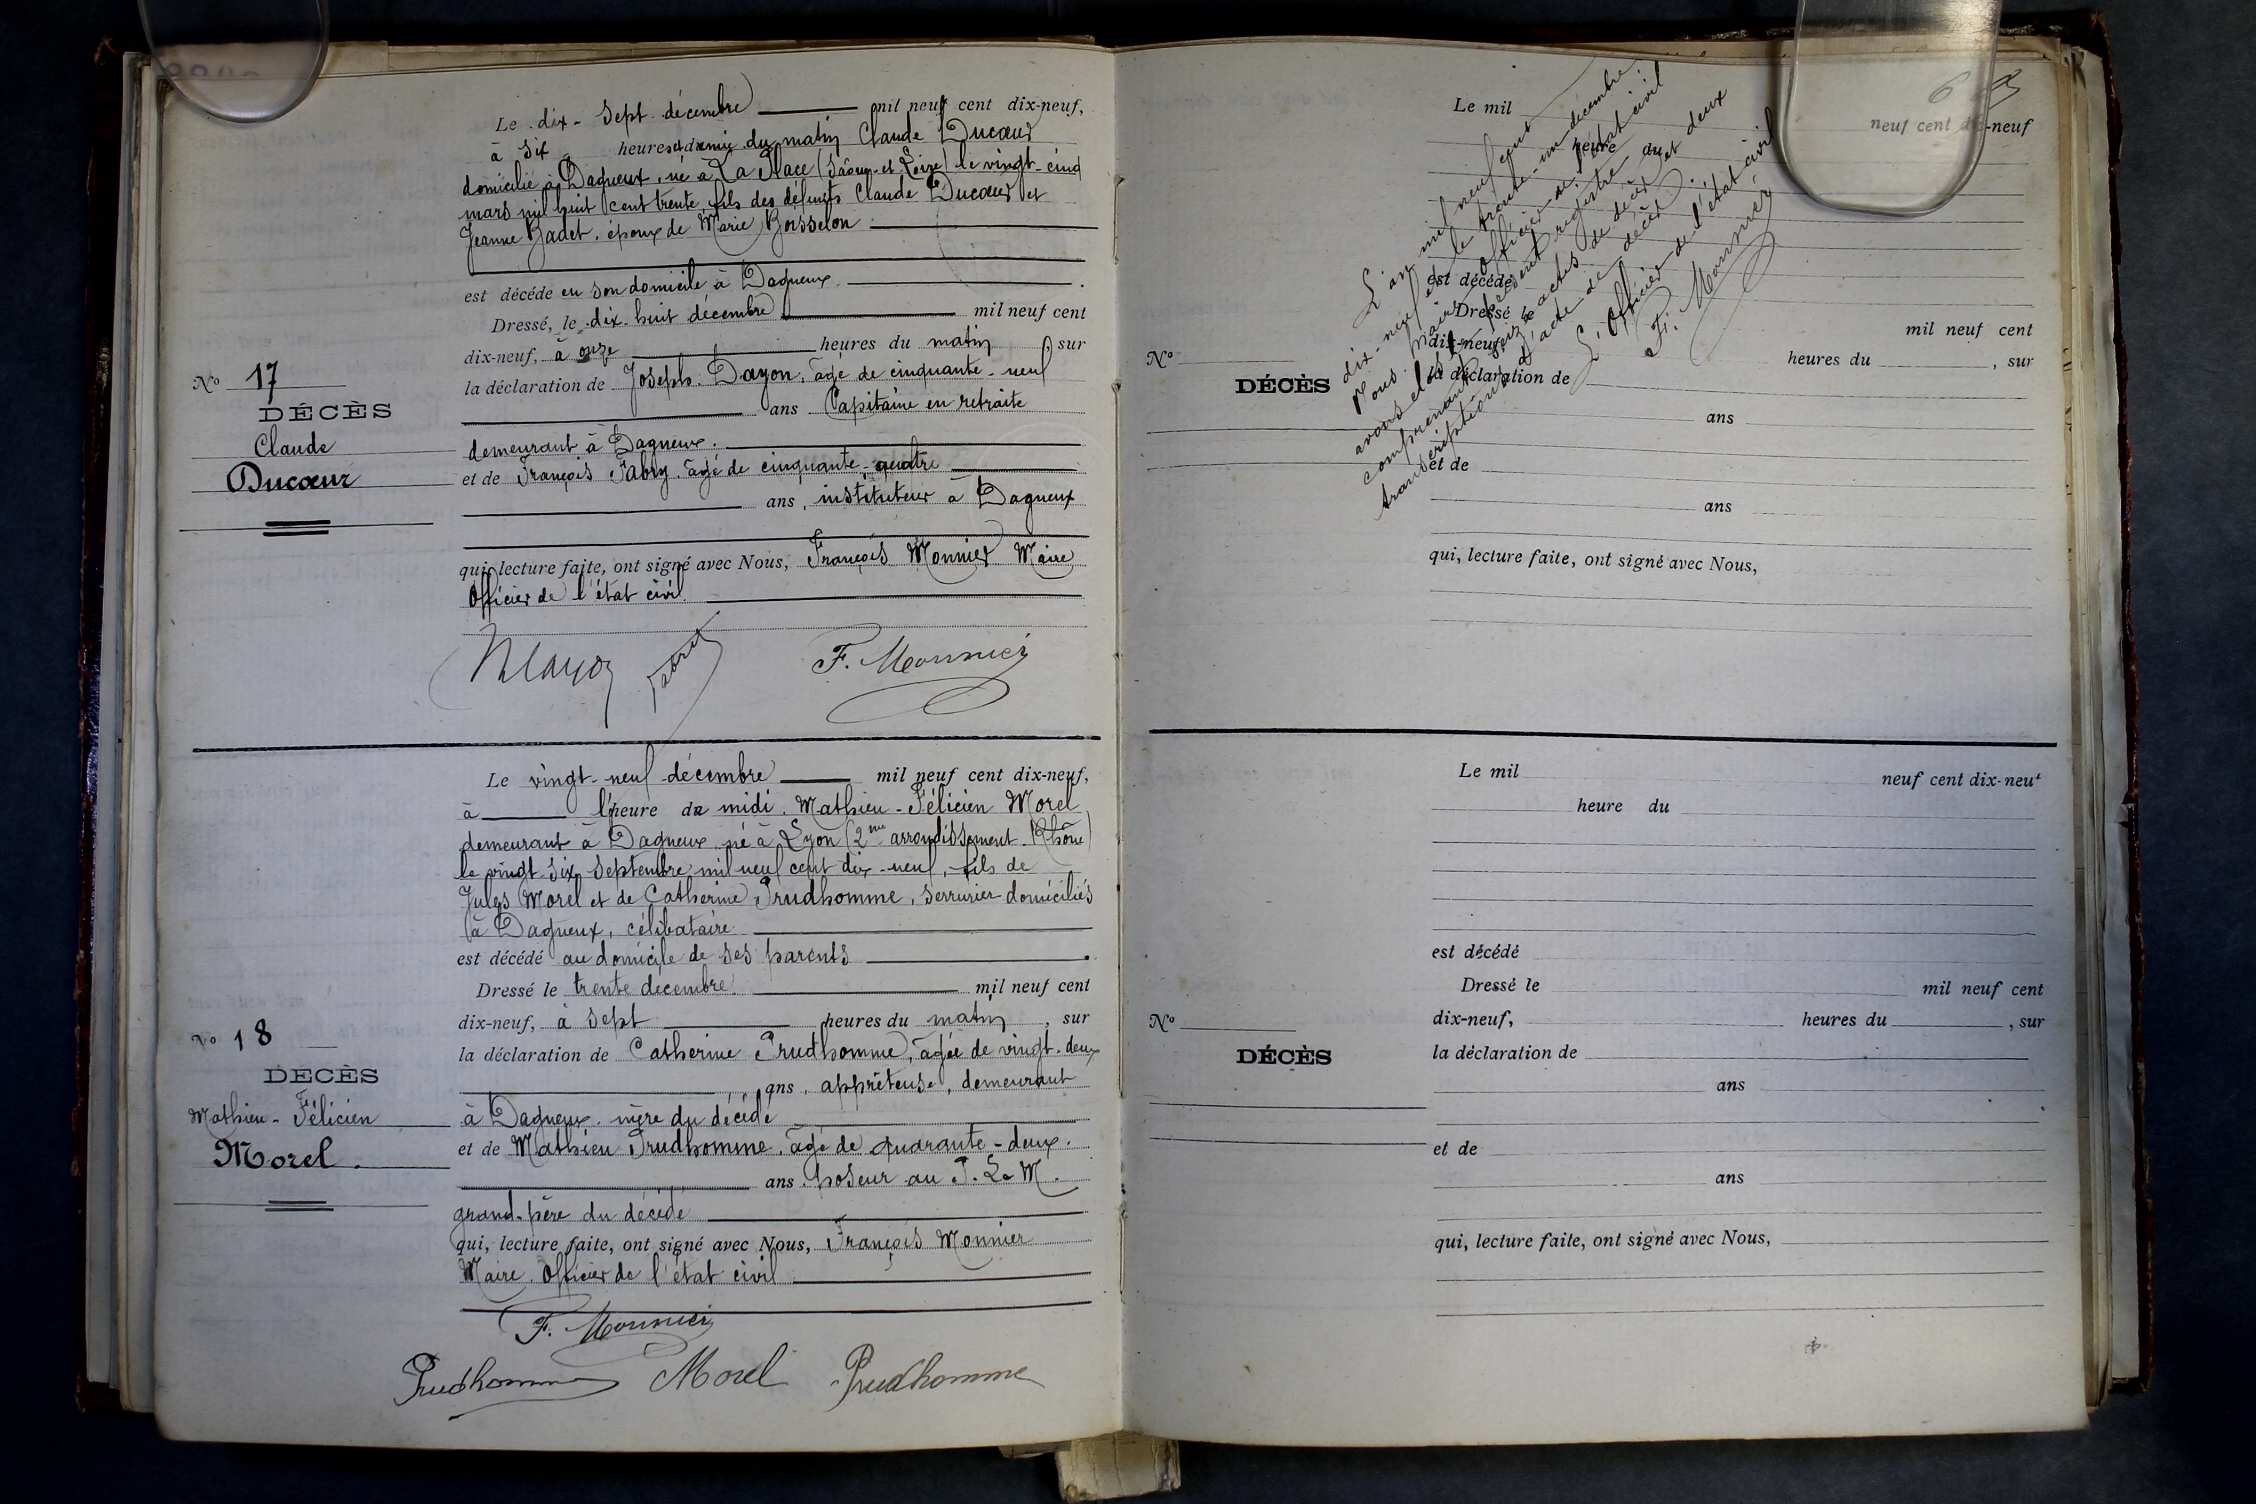 Le dix-sept décembre mil neuf cent dix-neuf,
à six heures et demie du matin Claude Ducœur
domicilié à Dagneux, né à La Place (Saône-et-Loire) le vingt-cinq
mars mil huit cent trente, fils des défunts Claude Ducœur et
Jeanne Badet, époux de Marie Boisselon
est décédé en son domicile à Dagneux.
Dressé, le dix-huit décembre mil neuf cent
dix-neuf, à onze heures du matin, sur
la déclaration de Joseph Dayon, âgé de cinquante-neuf
ans Capitaine en retraite
demeurant à Dagneux.
et de François Fabry, âgé de cinquante-quatre
ans, instituteur à Dagneux
qui, lecture faite, ont signé avec Nous, François Monnier Maire
Officier de l'état civil.
F. Monnier
No 17
DÉCÈS
Claude
Ducœur
Le vingt-neuf décembre mil neuf cent dix-neuf,
à l'heure de midi. Mathieu-Félicien Morel
demeurant à Dagneux, né à Lyon (2me arrondissement. Rhône)
le vingt six septembre mil neuf cent dix-neuf, fils de
Jules Morel et de Catherine Prudhomme, serrurier domiciliés
à Dagneux, célibataire.
est décédé au domicile de ses parents.
Dressé le trente décembre mil neuf cent
dix-neuf, à sept heures du matin, sur
la déclaration de Catherine Prudhomme, âgée de vingt-deux
ans, apprêteuse, demeurant
à Dagneux. mère du décédé
et de Mathieu Prudhomme, âgé de quarante-deux.
ans poseur au P. L. M.
grand-père du décédé
qui, lecture faite, ont signé avec Nous, François Monnier
Maire. Officier de l'état civil
F. Monnier
Prudhomme Morel Prudhomme
No 18
DÉCÈS
Mathieu-Félicien
Morel.
6
L'an mil neuf cent
dix-neuf et le trente-un décembre
Nous Maire Officier de l'état civil
avons clos le présent registre
comprenant seize actes de décès et deux
transcriptions d'acte de décès.
L'Officier de l'état civil
F. Monnier
Le mil neuf cent dix-neuf
heure du
est décédé
Dressé le mil neuf cent
dix-neuf, heures du , sur
la déclaration de
ans
et de
ans
qui, lecture faite, ont signé avec Nous,
No
DÉCÈS
Le mil neuf cent dix-neuf
heure du
est décédé
Dressé le mil neuf cent
dix-neuf, heures du , sur
la déclaration de
ans
et de
ans
qui, lecture faite, ont signé avec Nous,
No
DÉCÈS